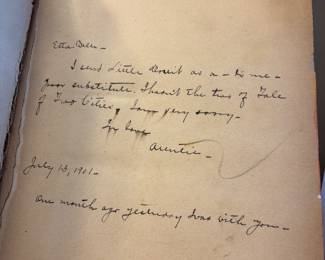 Etta Dear -
I send Little Dorrit as a - to me -
poor substitute. I haven't the two of Tale
of Two Cities, I am very sorry -
Auntie -
July 13, 1901 -
One month ago yesterday I was with you -